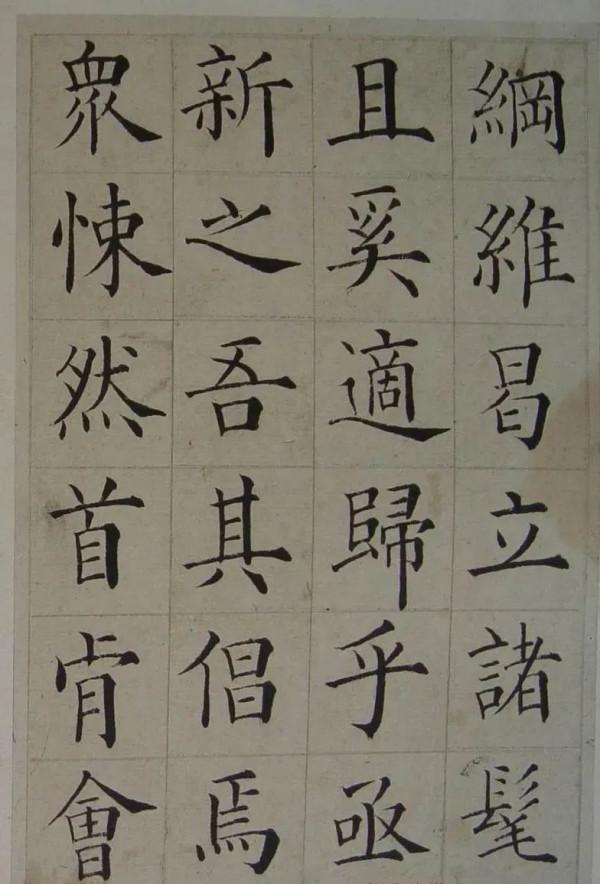 綱維曷立諸髦
且奚適歸乎亟
新之吾其倡焉
衆悚然首肯會